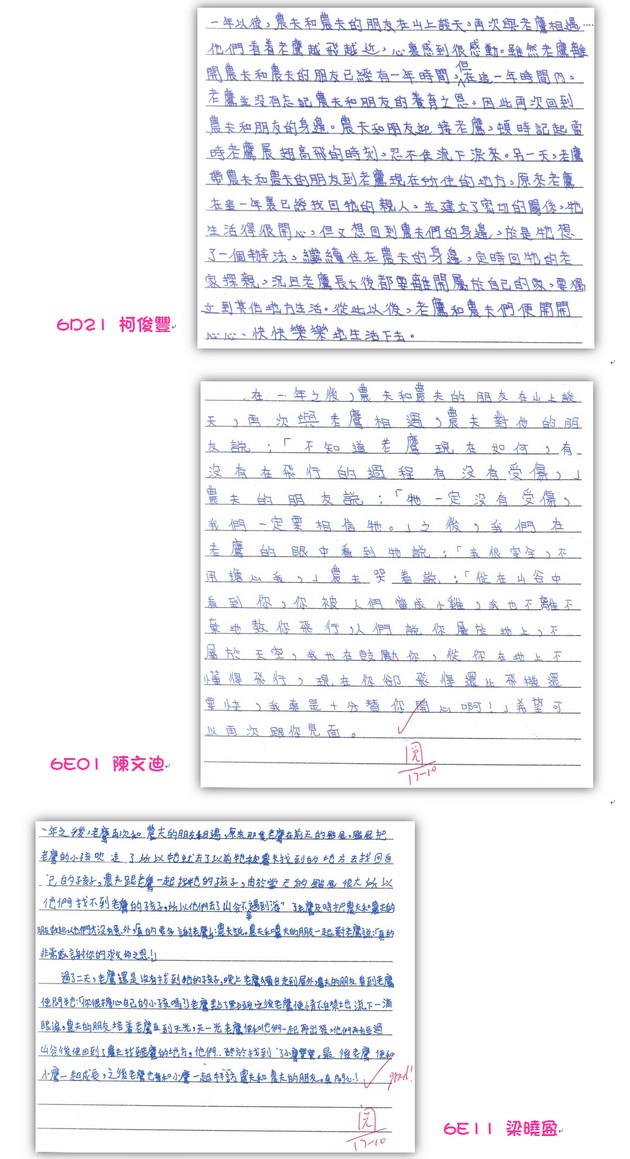 一年以後,農夫和農夫的朋友在山上談天,再次與老鷹相遇……
他們看着老鷹越飛越近,心裏感到很感動。雖然老鷹離
開農夫和農夫的朋友已經有一年時間,但在這一年時間內,
老鷹並沒有忘記農夫和朋友的養育之恩,因此再次回到
農夫和朋友的身邊。農夫和朋友迎接老鷹,頓時記起當
時老鷹展翅高飛的時刻,忍不住流下淚來。另一天,老鷹
帶農夫和農夫的朋友到老鷹現在所住的地方,原來老鷹
在這一年裏已經找回牠的親人,並建立了密切的關係,牠
生活得很開心,但又想回到農夫們的身邊,於是牠想
了一個辦法,繼續住在農夫的身邊,定時回牠的老
家探親,況且老鷹長大後都要離開屬於自己的家,要獨
立到其他地方生活。從此以後,老鷹和農夫們便開開
心心、快快樂樂地生活下去。
6D21 柯俊豐
在一年之後,農夫和農夫的朋友在山上談
天,再次與老鷹相遇,農夫對他的朋
友說:「不知道老鷹現在如何,有
沒有在飛行的過程有沒有受傷,」
農夫的朋友說:「牠一定沒有受傷,
我們一定要相信牠。」之後,我們在
老鷹的眼中看到牠說:「我很安全,不
用擔心我,」農夫哭着說:「從在山谷中
看到你,你被人們當成小雞,我也不離不
棄地教你飛行,人們說你屬於地上,不
屬於天空,我也在鼓勵你,從你在地上不
懂得飛行,現在你卻飛得還比飛機還
要快,我真是十分替你開心啊!」希望可
以再次跟你見面。
閱
17-10
6E01 陳文迪
一年之後,老鷹再次和農夫的朋友相遇,原來那隻老鷹在前天的颱風,颱風把
老鷹的小孩吹走了所以牠就去了以前牠被農夫找到的地方去找回自
己的孩子,農夫跟老鷹一起找牠的孩子,由於當天的颱風很大所以
他們找不到老鷹的孩子,所以他們去山谷不
農夫和農夫的朋友一起對老鷹說:「真的
非常感謝你的救命之恩!」
過了二天,老鷹還是沒有找到牠的孩子,晚上老鷹獨自走到屋外農夫的朋友看到老鷹
便問牠:「你很擔心自己的小孩嗎?」老鷹點了點頭之後老鷹便情不自禁地流下一滴
眼淚,農夫的朋友陪着老鷹直到天光,天一光老鷹便和他們一起再出發,他們再去過
山谷後便回到了農夫找到老鷹的地方,他們終於找到了小鷹,最後老鷹便和
小鷹一起成長,之後老鷹也會和小鷹一起探訪農夫和農夫的朋友,真開心!
good!
閱
17-10
6E11 梁曉盈